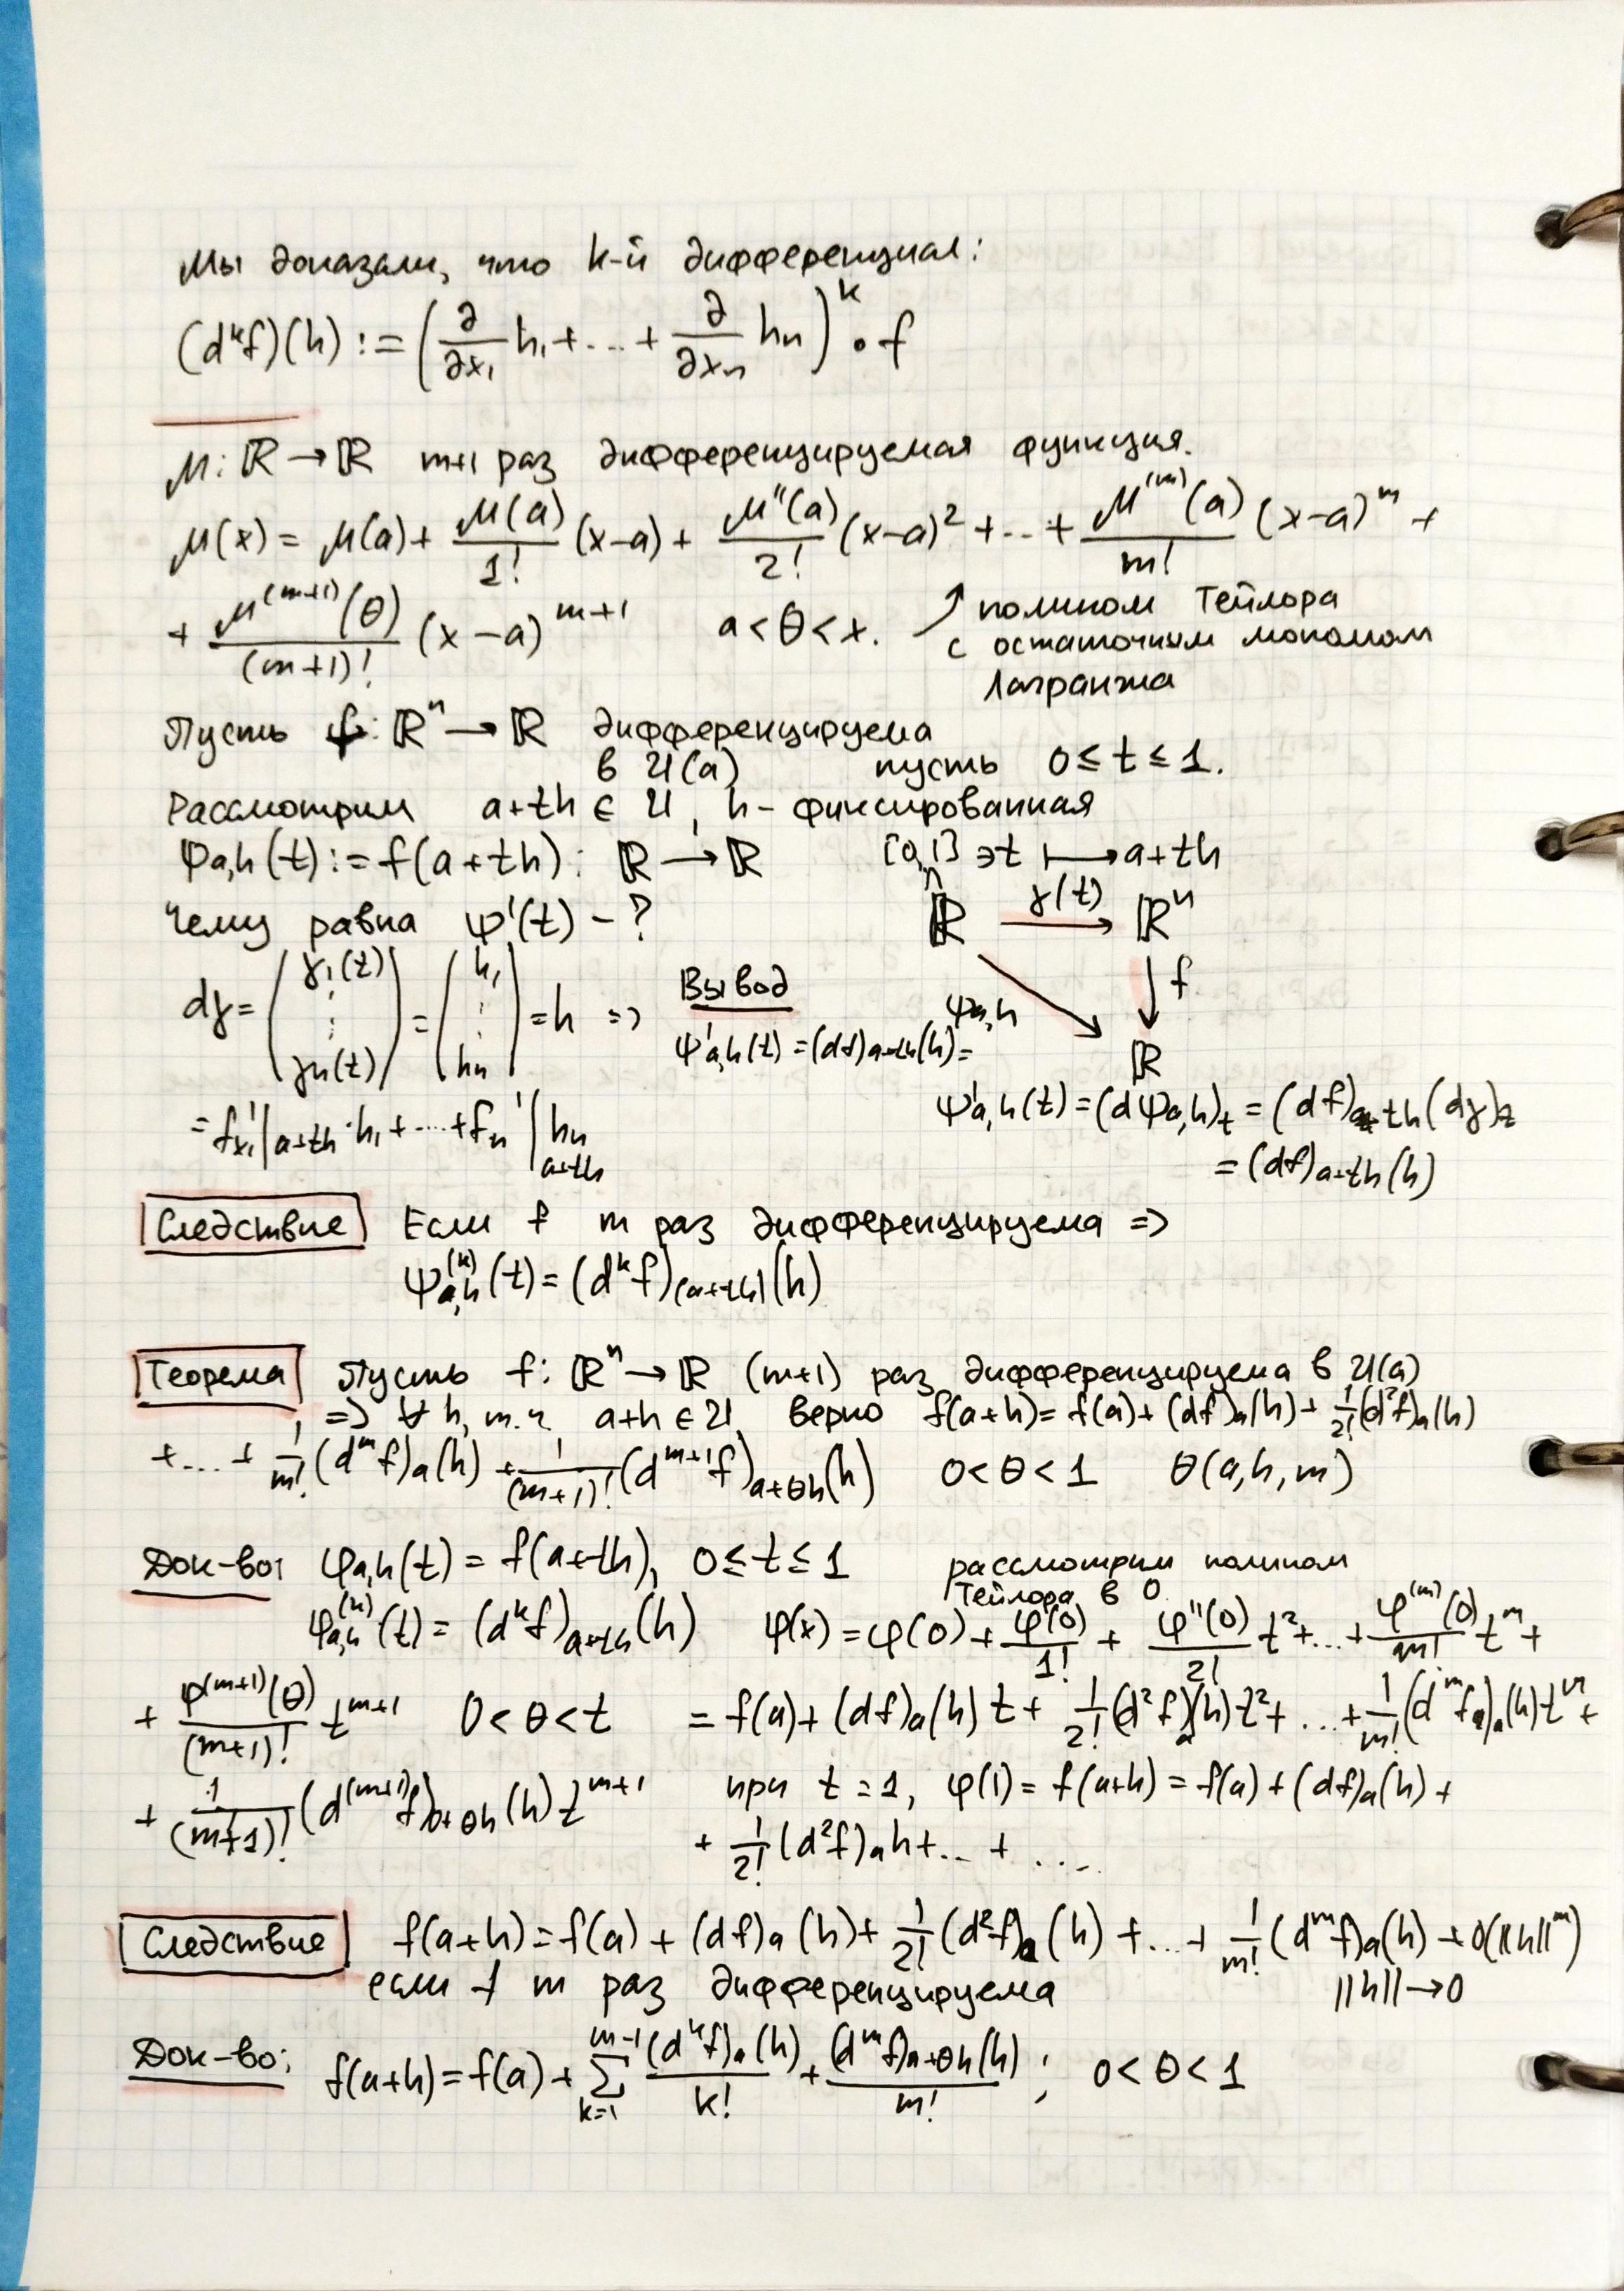 Мы доказали, что k-й дифференциал:
(dᵏf)(h) := (∂/∂x₁ h₁ + ... + ∂/∂xₙ hₙ)ᵏ ∘ f
μ: ℝ → ℝ m+1 раз дифференцируемая функция.
μ(x) = μ(a) + μ(a)/1! (x-a) + μ''(a)/2! (x-a)² + ... + μ⁽ᵐ⁾(a)/m! (x-a)ᵐ +
+ μ⁽ᵐ⁺¹⁾(θ)/(m+1)! (x-a)ᵐ⁺¹ a < θ < x. ↗ полином Тейлора
с остаточным мономом
Лагранжа
Пусть f: ℝⁿ → ℝ дифференцируема
в U(a) пусть 0 ≤ t ≤ 1.
Рассмотрим a+th ∈ U, h - фиксированная
φa,h(t) := f(a+th): ℝ → ℝ [0,1] ∋ t ↦ a+th
Чему равна φ'(t) - ? ℝ γ(t) → ℝⁿ
dγ = (γ₁(t) ⋮ γₙ(t)) = (h₁ ⋮ hₙ) = h => Вывод
φ'a,h(t) = (df)a+th(h) =
φa,h ↓ f
ℝ
φ'a,h(t) = (dφa,h)t = (df)a+th(dγ)t
= (df)a+th(h)
= f'x₁|a+th · h₁ + ... + fₙ'|a+th hₙ
Следствие Если f m раз дифференцируема =>
φ⁽ᵏ⁾a,h(t) = (dᵏf)(a+th)(h)
Теорема Пусть f: ℝⁿ → ℝ (m+1) раз дифференцируема в U(a)
=> ∀ h, т.ч. a+h ∈ U, верно f(a+h) = f(a) + (df)a(h) + 1/2! (d²f)a(h)
+ ... + 1/m! (dᵐf)a(h) + 1/(m+1)! (dᵐ⁺¹f)a+θh(h) 0 < θ < 1 θ(a,h,m)
Док-во: φa,h(t) = f(a+th), 0 ≤ t ≤ 1 рассмотрим полином
Тейлора в 0
φ⁽ᵏ⁾a,h(t) = (dᵏf)a+th(h) φ(x) = φ(0) + φ'(0)/1! + φ''(0)/2! t² + ... + φ⁽ᵐ⁾(0)/m! tᵐ +
+ φ⁽ᵐ⁺¹⁾(θ)/(m+1)! tᵐ⁺¹ 0 < θ < t = f(a) + (df)a(h) t + 1/2! (d²f)a(h) t² + ... + 1/m! (dᵐfa)a(h) tᵐ +
+ 1/(m+1)! (d⁽ᵐ⁺¹⁾f)a+θh(h) tᵐ⁺¹ при t = 1, φ(1) = f(a+h) = f(a) + (df)a(h) +
+ 1/2! (d²f)a h + ... + ....
Следствие f(a+h) = f(a) + (df)a(h) + 1/2! (d²f)a(h) + ... + 1/m! (dᵐf)a(h) + o(||h||ᵐ)
если f m раз дифференцируема ||h|| → 0
Док-во: f(a+h) = f(a) + ∑ₖ₌₁ᵐ⁻¹ (dᵏf)a(h)/k! + (dᵐf)a+θh(h)/m! ; 0 < θ < 1